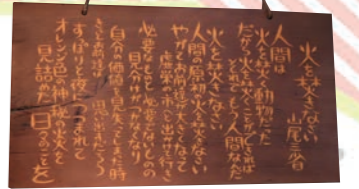 火を焚きなさい
山尾三省
人間は
火を焚く動物だった
だから 火を焚くことができれば
それでもう人間なんだ
火を焚きなさい
人間の原初の火を焚きなさい
やがてお前達が大きくなって 虚栄の市へと出かけて行き
必要なものと 必要でないものの
見分けがつかなくなり
自分の価値を見失ってしまった時
きっとお前達は 思い出すだろう
すっぽりと夜につつまれて
オレンジ色の神秘の火を
見詰めた日々のことを